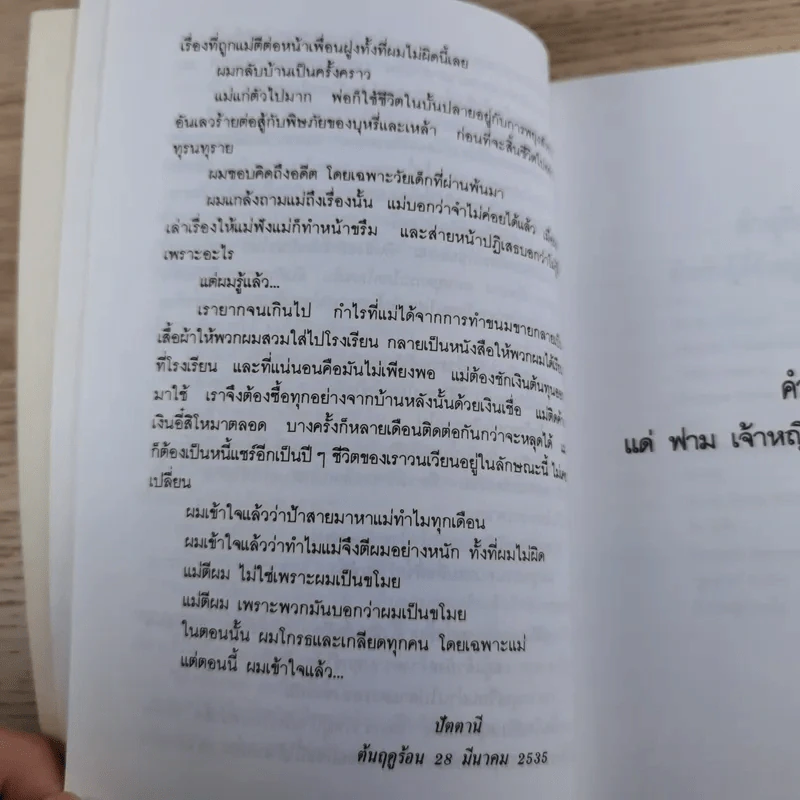 เรื่องที่ถูกแม่ตีต่อหน้าเพื่อนฝูงทั้งที่ผมไม่ผิดนี้เลย
ผมกลับบ้านเป็นครั้งคราว
แม่แก่ตัวไปมาก พ่อก็ใช้ชีวิตในบั้นปลายอยู่กับการ
อันเลวร้ายต่อสู้กับพิษภัยของบุหรี่และเหล้า ก่อนที่จะสิ้นชีวิต
ทุรนทุราย
ผมชอบคิดถึงอดีต โดยเฉพาะวัยเด็กที่ผ่านพ้นมา
ผมแกล้งถามแม่ถึงเรื่องนั้น แม่บอกว่าจำไม่ค่อยได้แล้ว
เล่าเรื่องให้แม่ฟังแม่ก็ทำหน้าขรึม และส่ายหน้าปฏิเสธบอกว่า
เพราะอะไร
แต่ผมรู้แล้ว...
เรายากจนเกินไป กำไรที่แม่ได้จากการทำขนมขายกลาย
เสื้อผ้าให้พวกผมสวมใส่ไปโรงเรียน กลายเป็นหนังสือให้พวกผมได้
ที่โรงเรียน และที่แน่นอนคือมันไม่เพียงพอ แม่ต้องชักเงินต้นทุน
มาใช้ เราจึงต้องซื้อทุกอย่างจากบ้านหลังนั้นด้วยเงินเชื่อ แม่ติดค้าง
เงินอี๋สิโหมาตลอด บางครั้งก็หลายเดือนติดต่อกันกว่าจะหลุดได้
ก็ต้องเป็นหนี้แชร์อีกเป็นปี ๆ ชีวิตของเราวนเวียนอยู่ในลักษณะนี้
เปลี่ยน
ผมเข้าใจแล้วว่าป้าสายมาหาแม่ทำไมทุกเดือน
ผมเข้าใจแล้วว่าทำไมแม่จึงตีผมอย่างหนัก ทั้งที่ผมไม่ผิด
แม่ตีผม ไม่ใช่เพราะผมเป็นขโมย
แม่ตีผม เพราะพวกมันบอกว่าผมเป็นขโมย
ในตอนนั้น ผมโกรธและเกลียดทุกคน โดยเฉพาะแม่
แต่ตอนนี้ ผมเข้าใจแล้ว...
ปัตตานี
ต้นฤดูร้อน 28 มีนาคม 2535
คำ
แด่ ฟาม เจ้าหญิ